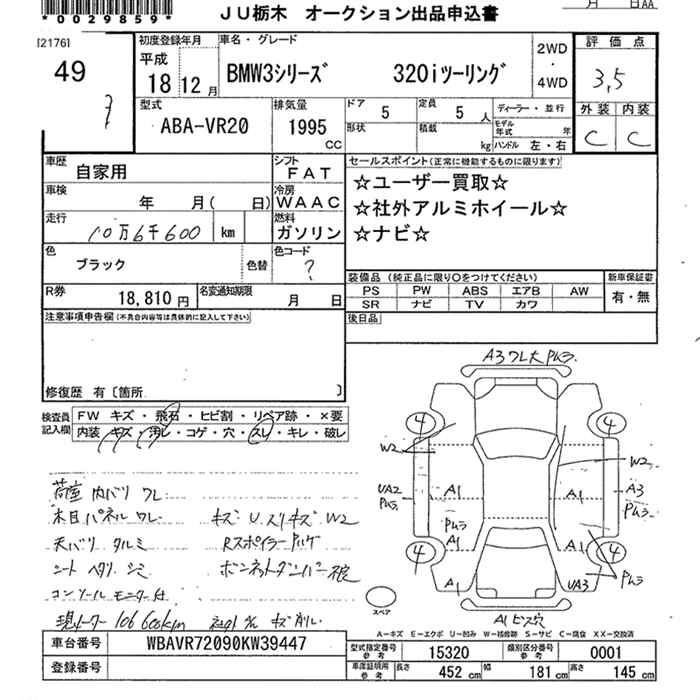 *0029859*
JU栃木 オークション出品申込書
月 日AA
[2176]
49
初度登録年月
平成
18 12月
車名・グレード
BMW3シリーズ 320iツーリング
2WD
・
4WD
評価点
3,5
外装 内装
C C
型式
ABA-VR20
排気量
1995
CC
ドア
5
定員
5 人
形状
積載
kg
ディーラー・並行
モデル年式 年
ハンドル 左・右
車歴
自家用
シフト
FAT
車検
年 月( 日)
冷房
WAAC
走行
10万6千600 km
燃料
ガソリン
色
ブラック
色替
色コード
?
R券
18,810円
名変通知期限
月 日
セールスポイント(正常に機能するものに限ります)
☆ユーザー買取☆
☆社外アルミホイール☆
☆ナビ☆
装備品 (純正品に限り○をつけてください)
PS PW ABS エアB AW
SR ナビ TV カワ
新車保証書
有・無
後日品
注意事項申告欄(不具合内容等は具体的に記入して下さい)
修復歴 有〔箇所 〕
検査員記入欄
FW キズ・飛石・ヒビ割・リペア跡・×要
内装 キズ・汚レ・コゲ・穴・スレ・キレ・破レ
荷室 内バリ ワレ
木目パネル ワレ キズ U スリキズ W2
天バリ タルミ
シート ヘタリ シミ
コンソール モニター付
現メーター 106600km
A3 ワレ大
4 4
W2 W2
UA2 A1 A1 A3
A1 A1
4 4
A1 UA3
A1 ビス穴
スペア
A-キズ E-エクボ U-凹み W-補修跡 S-サビ C-腐食 XX-交換済
車台番号
WBAVR72090KW39447
登録番号
型式指定番号 参考
15320
類別区分番号 参考
0001
車庫証明用 参考
長さ 452 cm 幅 181 cm 高さ 145 cm